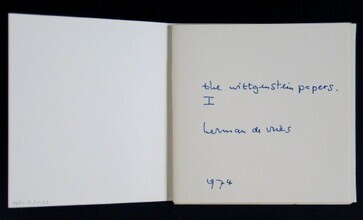 the wittgenstein papers.
I
herman de vries
1974